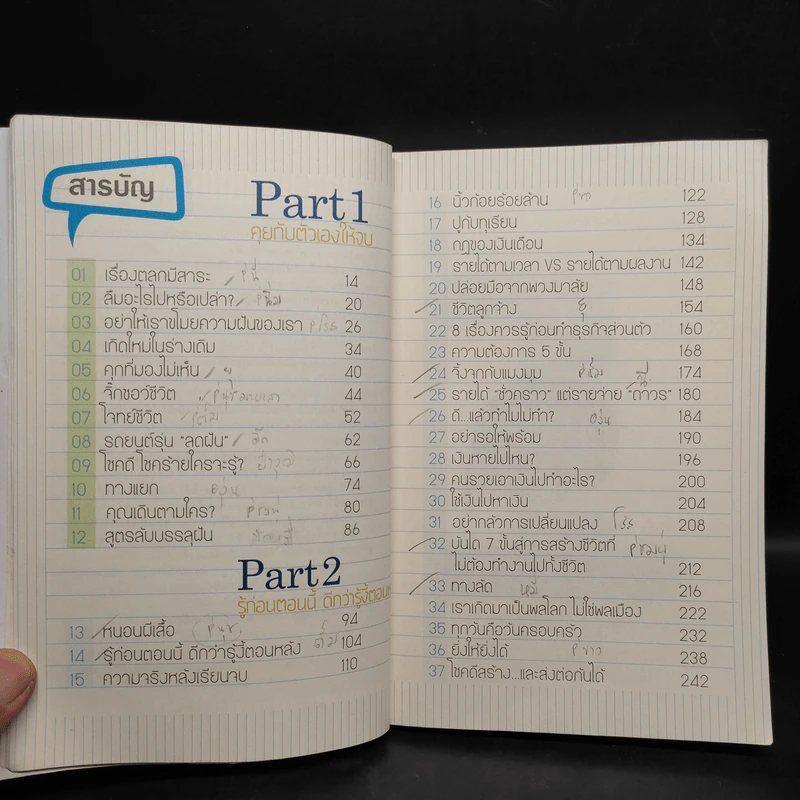 สารบัญ
Part 1
คุยกับตัวเองให้จบ
01 เรื่องตลกมีสาระ 14
02 ลืมอะไรไปหรือเปล่า? 20
03 อย่าให้เราขโมยความฝันของเรา 26
04 เกิดใหม่ในร่างเดิม 34
05 คุกที่มองไม่เห็น 40
06 จิ๊กซอว์ชีวิต 44
07 โจทย์ชีวิต 52
08 รถยนต์รุ่น "ลดฝัน" 62
09 โชคดี โชคร้ายใครจะรู้? 66
10 ทางแยก 74
11 คุณเดินตามใคร? 80
12 สูตรลับบรรลุฝัน 86
Part 2
รู้ก่อนตอนนี้ ดีกว่ารู้งี้ตอน
13 หนอนผีเสื้อ 94
14 รู้ก่อนตอนนี้ ดีกว่ารู้งี้ตอนหลัง 104
15 ความจริงหลังเรียนจบ 110
16 นิ้วก้อยร้อยล้าน 122
17 ปูกับทุเรียน 128
18 กฎของเงินเดือน 134
19 รายได้ตามเวลา VS รายได้ตามผลงาน 142
20 ปล่อยมือจากพวงมาลัย 148
21 ชีวิตลูกจ้าง 154
22 8 เรื่องควรรู้ก่อนทำธุรกิจส่วนตัว 160
23 ความต้องการ 5 ขั้น 168
24 จิ้งจกกับแมงมุม 174
25 รายได้ "ชั่วคราว" แต่รายจ่าย "ถาวร" 180
26 ดี...แล้วทำไมไม่ทำ? 184
27 อย่ารอให้พร้อม 190
28 เงินหายไปไหน? 196
29 คนรวยเอาเงินไปทำอะไร? 200
30 ใช้เงินไปหาเงิน 204
31 อย่ากลัวการเปลี่ยนแปลง 208
32 บันได 7 ขั้นสู่การสร้างชีวิตที่
ไม่ต้องทำงานไปทั้งชีวิต 212
33 ทางลัด 216
34 เราเกิดมาเป็นพลโลก ไม่ใช่พลเมือง 222
35 ทุกวันคือวันครอบครัว 232
36 ยิ่งให้ยิ่งได้ 238
37 โชคดีสร้าง...และส่งต่อกันได้ 242